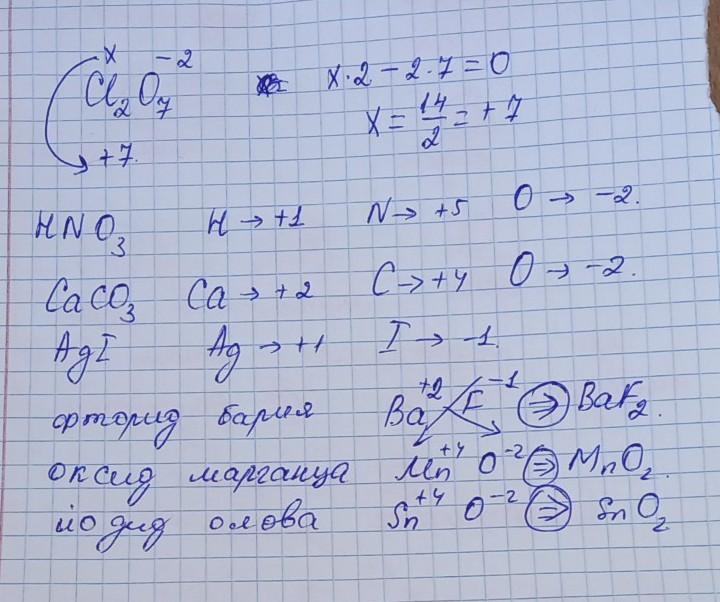 x -2
Cl₂O₇ x·2-2·7=0
+7. x=14/2=+7
HNO₃ H→+1 N→+5 O→-2.
CaCO₃ Ca→+2 C→+4 O→-2.
AgI Ag→+1 I→-1.
фторид бария Ba⁺² F⁻¹ ⇒ BaF₂.
оксид марганца Mn⁺⁴ O⁻² ⇒ MnO₂.
йодид олова Sn⁺⁴ O⁻² ⇒ SnO₂